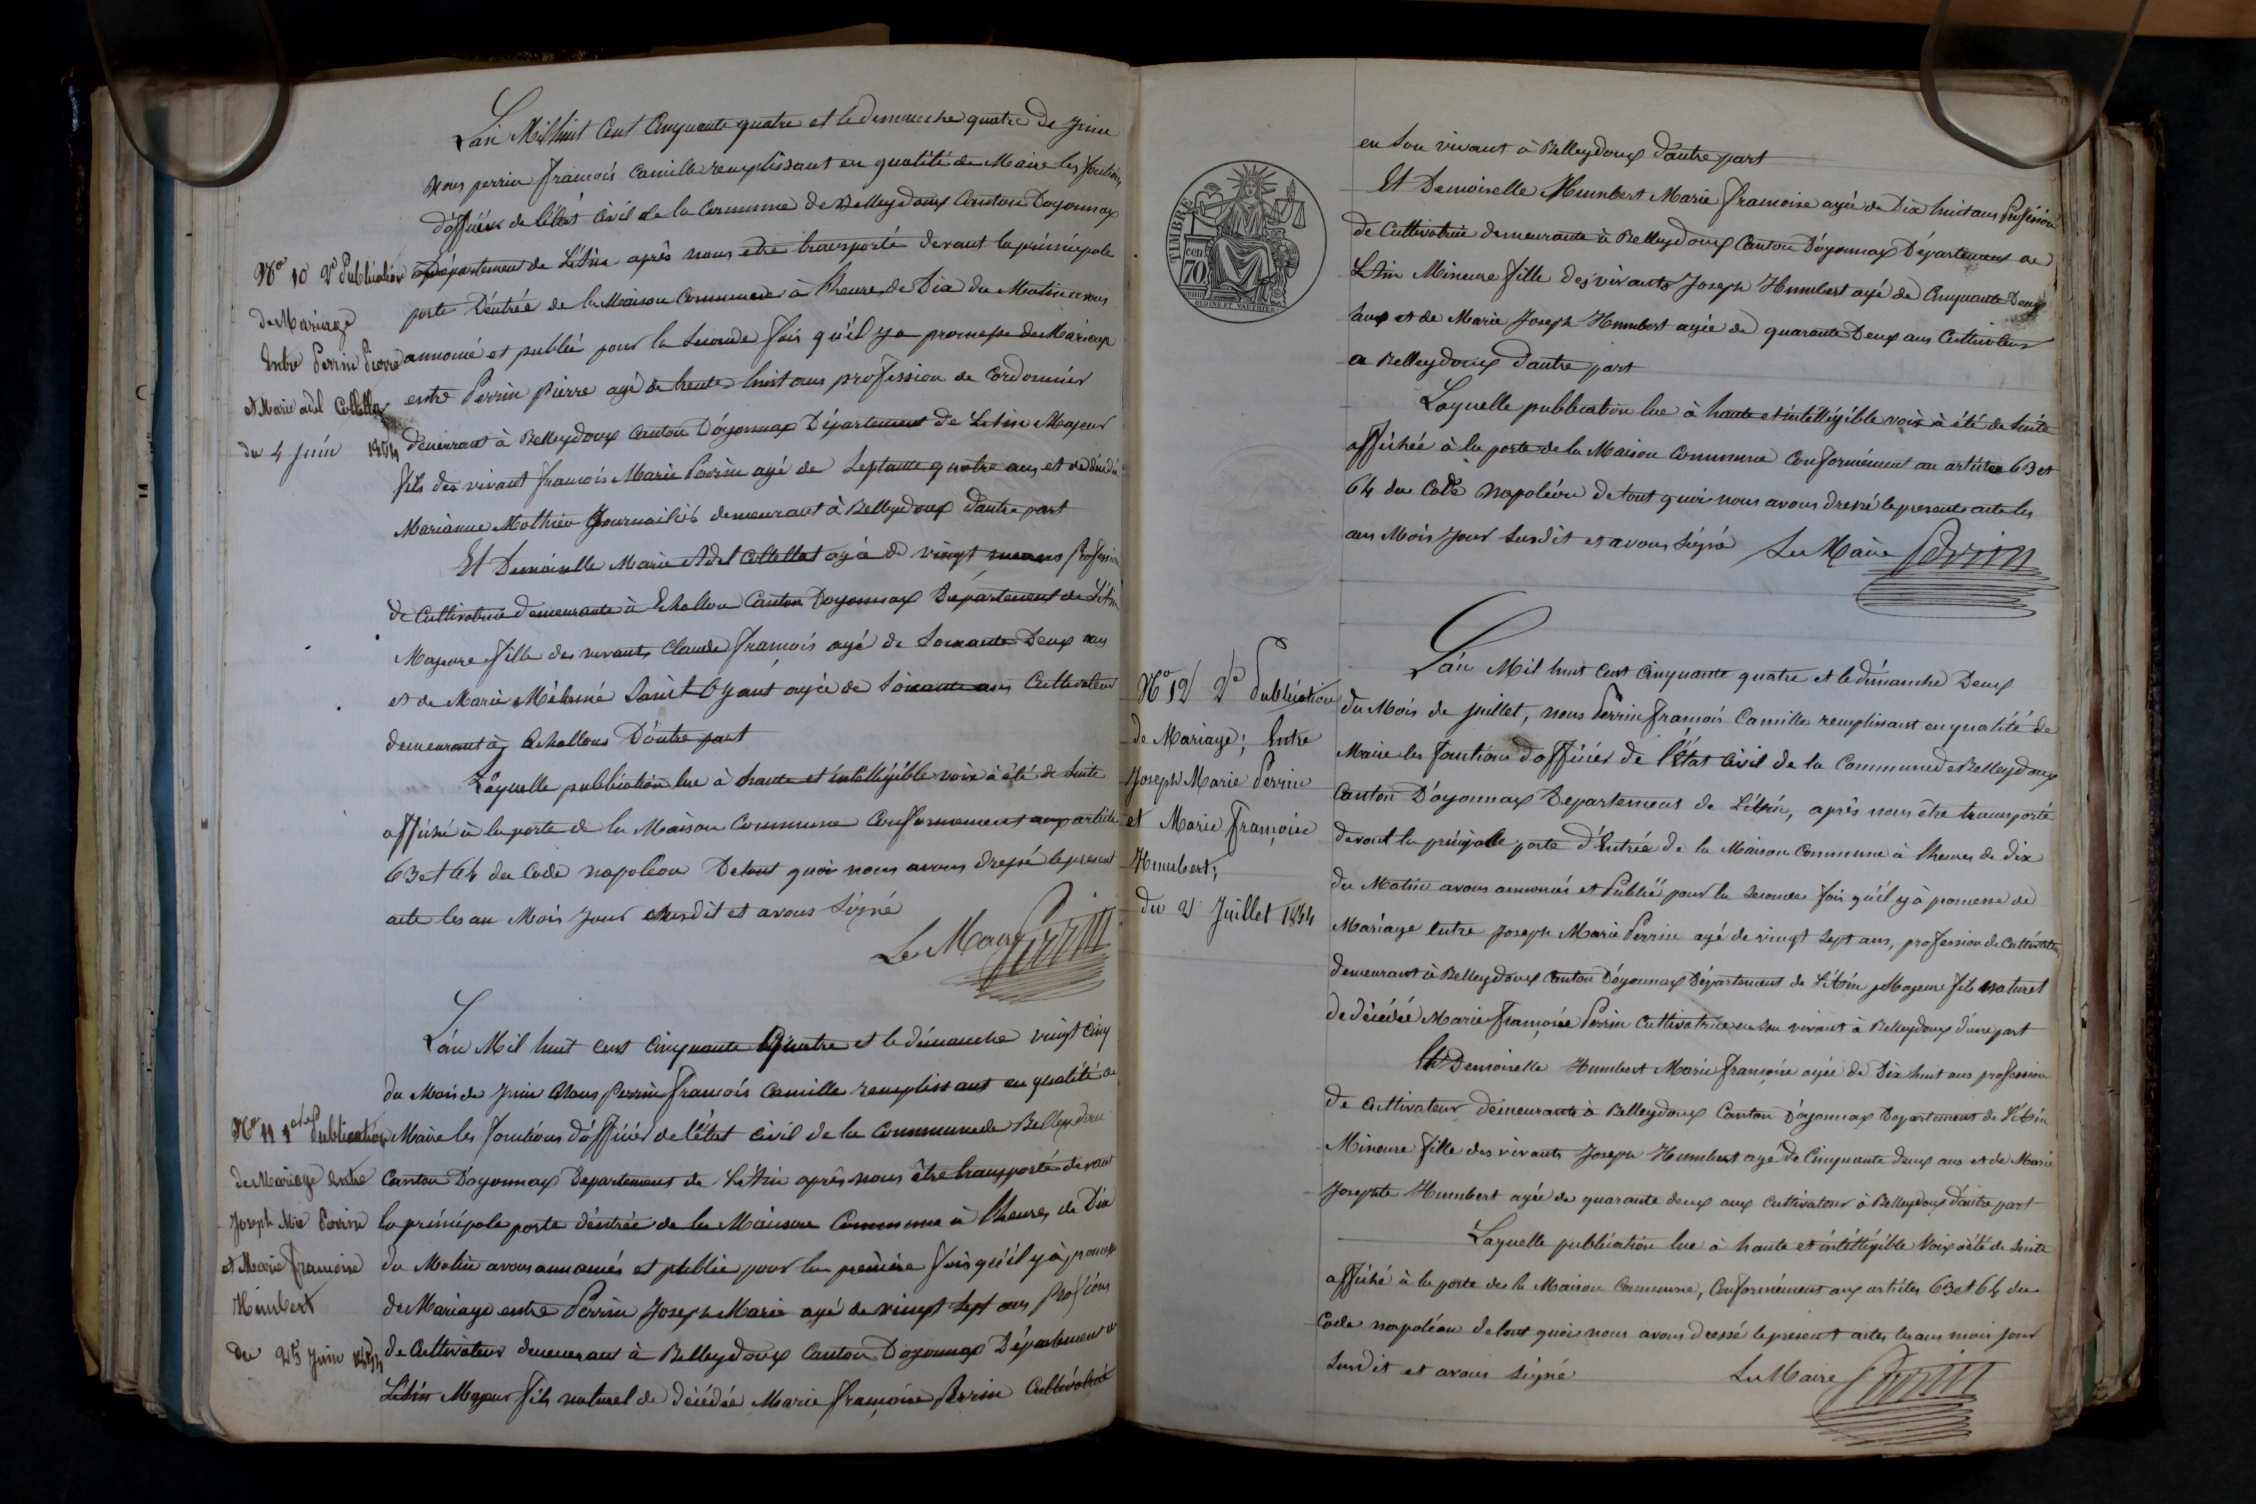 L'an Mil huit Cent Cinquante quatre et le dimanche quatre de Juin
Nous perrin françois Camille remplissant en qualité de Maire les fonctions
d'officier de l'état Civil de la Commune de Belleydoux Canton D'oyonnax
Nº 10 2e Publication
de Mariage
Entre Perrin Pierre
et Marie adel Collettaz
du 4 Juin 1854
département de L'Ain après nous etre transporté devant la principale
porte D'entrée de la Maison Commune à l'heure de Dix du Matin avons
annoncé et publié pour la seconde fois qu'il y a promesse de Mariage
entre Perrin Pierre agé de trente huit ans profession de Cordonnier
demeurant à Belleydoux Canton D'oyonnax Département de L'Ain Majeur
fils des vivant françois Marie Perrin agé de Septante quatre ans et de
Marianne Mathieu Journaliès demeurant à Belleydoux d'autre part
Et Demoiselle Marie Adel Collettat agé de vingt ans Profession
de Cultivatrice demeurante à Echallon Canton D'oyonnax Département de L'Ain
Majeure fille des vivants Claude françois agé de Soixante Deux ans
et de Marie agée de Soixante ans Cultivateur
demeurant à Echallons D'autre part
Laquelle publication lue à haute et intélligible voix à été de suite
affiché à la porte de la Maison Commune Conformément aux articles
63 et 64 du Code napoléon De tout quoi nous avons dressé le présent
acte les an Mois Jour susdit et avons signé
Le Maire Perrin
L'an Mil huit cent Cinquante Quatre et le dimanche vingt Cinq
du Mois de Juin Nous Perrin françois Camille remplissant en qualité de
Nº 11 1ere Publication
de Mariage Entre
Joseph Mie Perrin
et Marie francoise
Humbert
du 25 Juin 1854
Maire les fonctions d'officier de l'état civil de la Commune de Belleydoux
Canton D'oyonnax Departement de L'Ain après nous être transporté devant
la principale porte d'entrée de la Maison Commune à l'heure de Dix
du Matin avons annoncés et publié pour la première fois qu'il y à promesse
de Mariage entre Perrin Joseph Marie agé de vingt sept ans Profession
de Cultivateur demeurant à Belleydoux Canton D'oyonnax Département de
L'Ain Majeur fils naturel de décédée Marie françoise Perrin Cultivatrice
TIMBRE
70
en son vivant à Belleydoux d'autre part
Et Demoiselle Humbert Marie francoise agée de Dix huit ans Profession
de Cultivatrice demeurante à Belleydoux Canton D'oyonnax Département de
L'Ain Mineure fille des vivants Joseph Humbert agé de Cinquante Deux
ans et de Marie Joseph Humbert agée de quarante Deux ans Cultivateur
a Belleydoux d'autre part
Laquelle publication lue à haute et intélligible voix à été de suite
affichée à la porte de la Maison Commune Conformément au articles 63 et
64 du Code Napoléon de tout quoi nous avons dressé le present acte les
ans Mois Jour Susdit et avons signé Le Maire Perrin
L'an Mil huit Cent Cinquante quatre et le dimanche Deux
Nº 12 2e Publication
de Mariage; Entre
Joseph Marie Perrin
et Marie françoise
Humbert;
du 2 Juillet 1854
du Mois de Juillet, nous Perrin françois Camille remplissant en qualité de
Maire les fonctions d'officier de l'État Civil de la Commune de Belleydoux
Canton D'oyonnax Departement de L'Ain, après nous etre transporté
devant la principale porte d'Entrée de la Maison Commune à l'heure de dix
du Matin avons annoncés et Publié pour la seconde fois qu'il y à promesse de
Mariage Entre Joseph Marie Perrin agé de vingt Sept ans, profession de Cultivateur
demeurant à Belleydoux Canton D'oyonnax Département de L'Ain Majeur fils naturel
de décédée Marie françoise Perrin Cultivatrice en son vivant à Belleydoux d'une part
Et Demoiselle Humbert Marie françoise agée de Dix huit ans profession
de Cultivateur demeurante à Belleydoux Canton D'oyonnax Departement de L'Ain
Mineure fille des vivants Joseph Humbert agé de Cinquante deux ans et de Marie
Josephte Humbert agée de quarante deux ans Cultivateur à Belleydoux d'autre part
Laquelle publication lue à haute et intélligible Voix à été de suite
affiché à la porte de la Maison Commune, Conformément aux articles 63 et 64 du
Code napoléon de tout quoi nous avons dressé le present actes les ans mois jour
Susdit et avons signé Le Maire Perrin